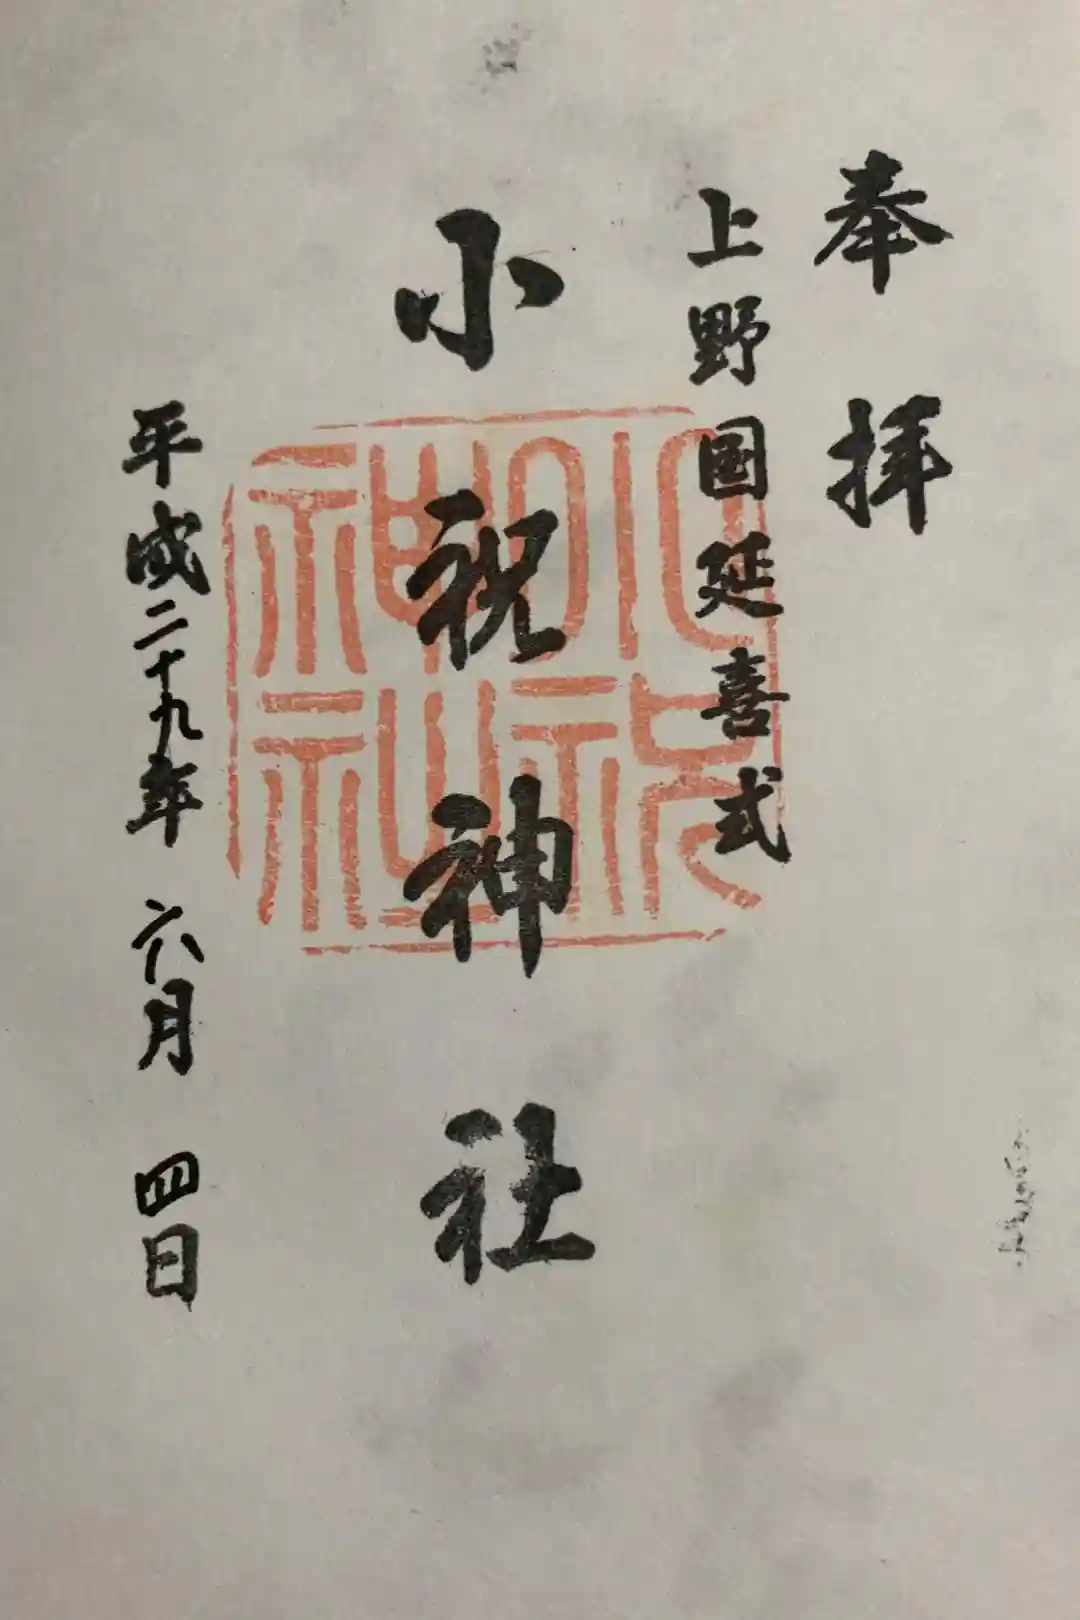 奉拝
上野国延喜式
小祝神社
平成二十九年 六月 四日
小祝
神社